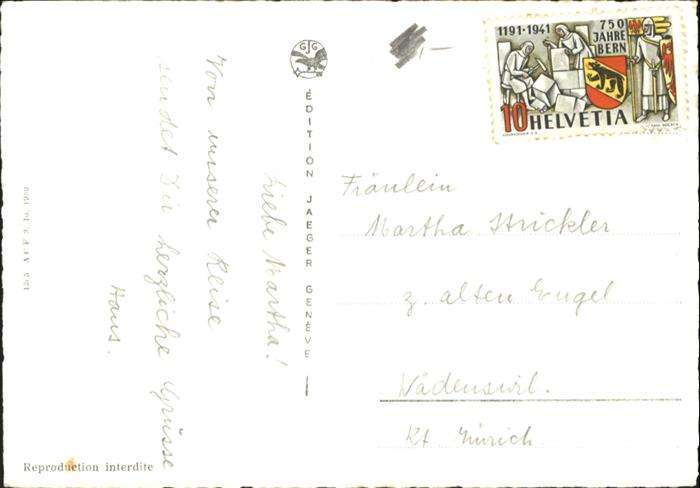 Liebe Martha!
Von unserer Reise
sendet Dir herzliche Grüsse
Hans.
Reproduction interdite
GJG
ÉDITION JAEGER GENÈVE
1191-1941
750
JAHRE
BERN
10 HELVETIA
Fräulein
Martha Strickler
z. alten Engel
Wädenswil.
Kt Zürich